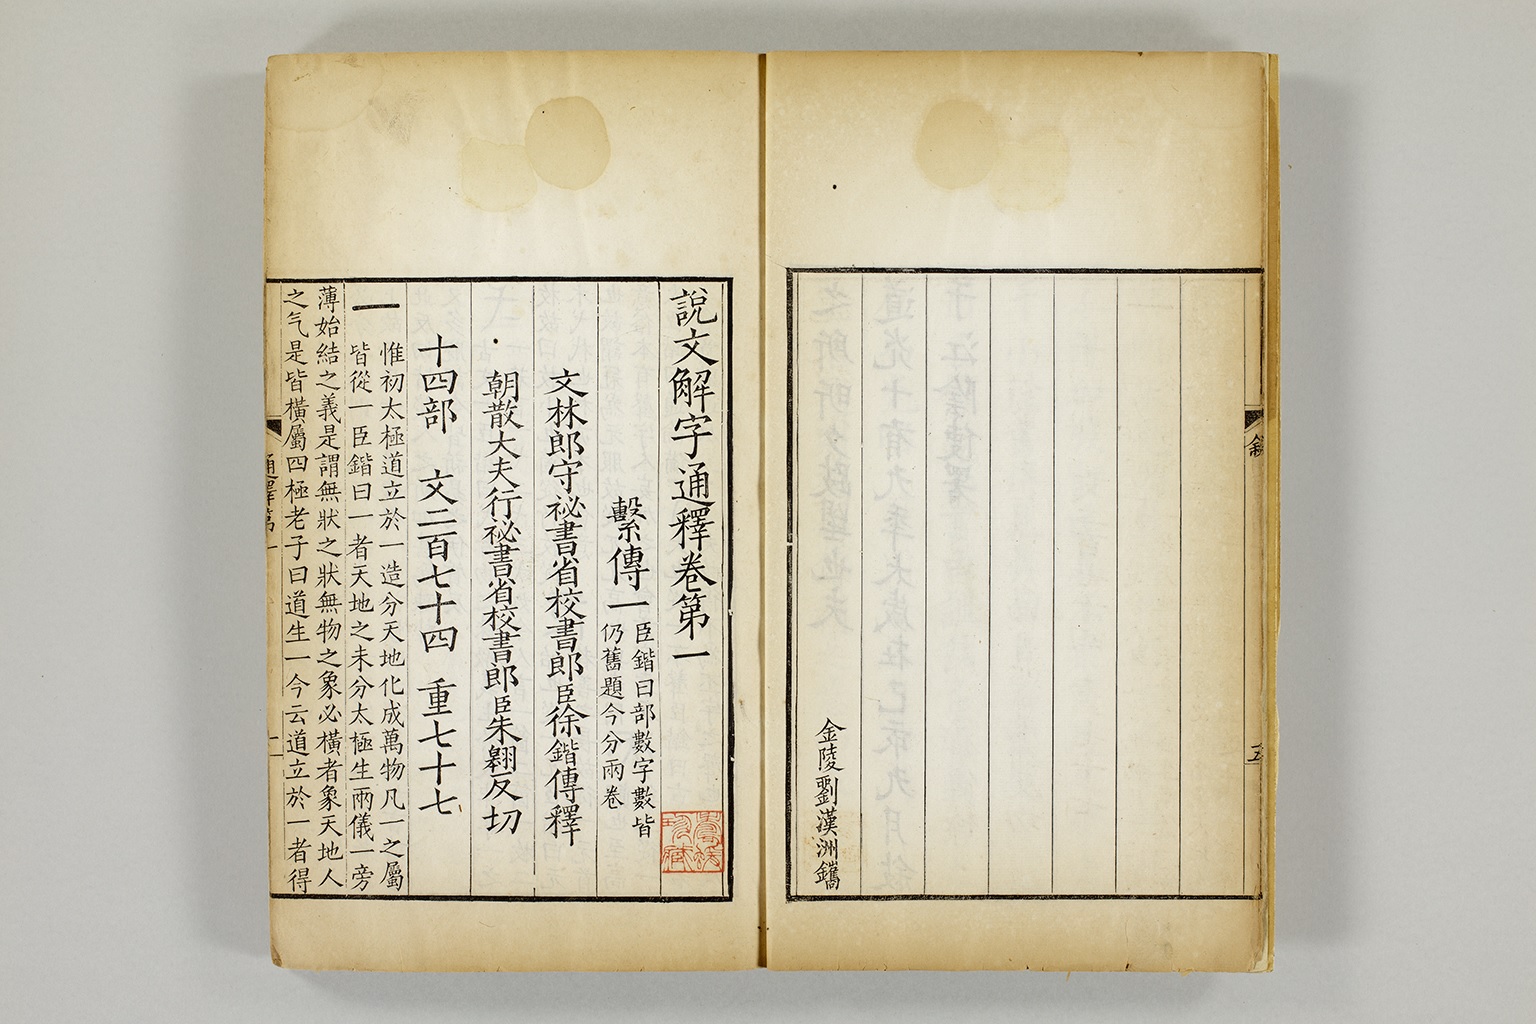 金陵劉漢洲鐫
敘
五
說文解字通釋卷第一
繫傳一
臣鍇曰部數字數皆
仍舊題今分兩卷
文林郎守祕書省校書郎臣徐鍇傳釋
朝散大夫行祕書省校書郎臣朱翱反切
十四部 文二百七十四 重七十七
一
惟初太極道立於一造分天地化成萬物凡一之屬
皆從一臣鍇曰一者天地之未分太極生兩儀一旁
薄始結之義是謂無狀之狀無物之象必橫者象天地人
之气是皆橫屬四極老子曰道生一今云道立於一者得
通釋第一
一